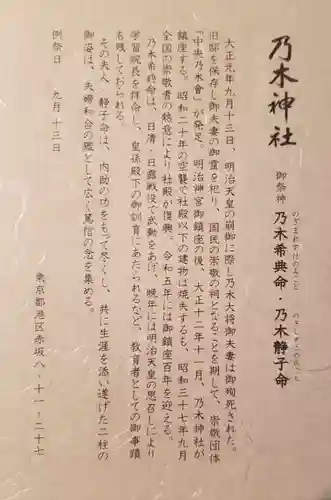 乃木神社
御祭神
乃木希典命・乃木靜子命
のぎまれすけのみこと
のぎしずこのみこと
大正元年九月十三日、明治天皇の崩御に際し乃木大将御夫妻は御殉死された。
旧邸を保存し御夫妻の御霊を祀り、国民の崇敬の祠となることを期して、崇敬団体
「中央乃木會」が発足。明治神宮御鎮座の後、大正十二年十一月、乃木神社が
鎮座する。昭和二十年の空襲で社殿以下の建物は焼失するも、昭和三十七年九月
全国の崇敬者の熱意により社殿が復興。令和五年には御鎮座百年を迎える。
乃木希典命は、日清・日露戦役で武勲をあげ、晩年には明治天皇の思召しにより
学習院長を拝命し、皇孫殿下の御訓育にあたられるなど、教育者としての御事蹟
を残しておられる。
その夫人 静子命は、内助の功をもって尽くし、共に生涯を添い遂げた二柱の
御姿は、夫婦和合の鑑として広く篤信の念を集める。
例祭日 九月十三日
東京都港区赤坂八-十一-二十七